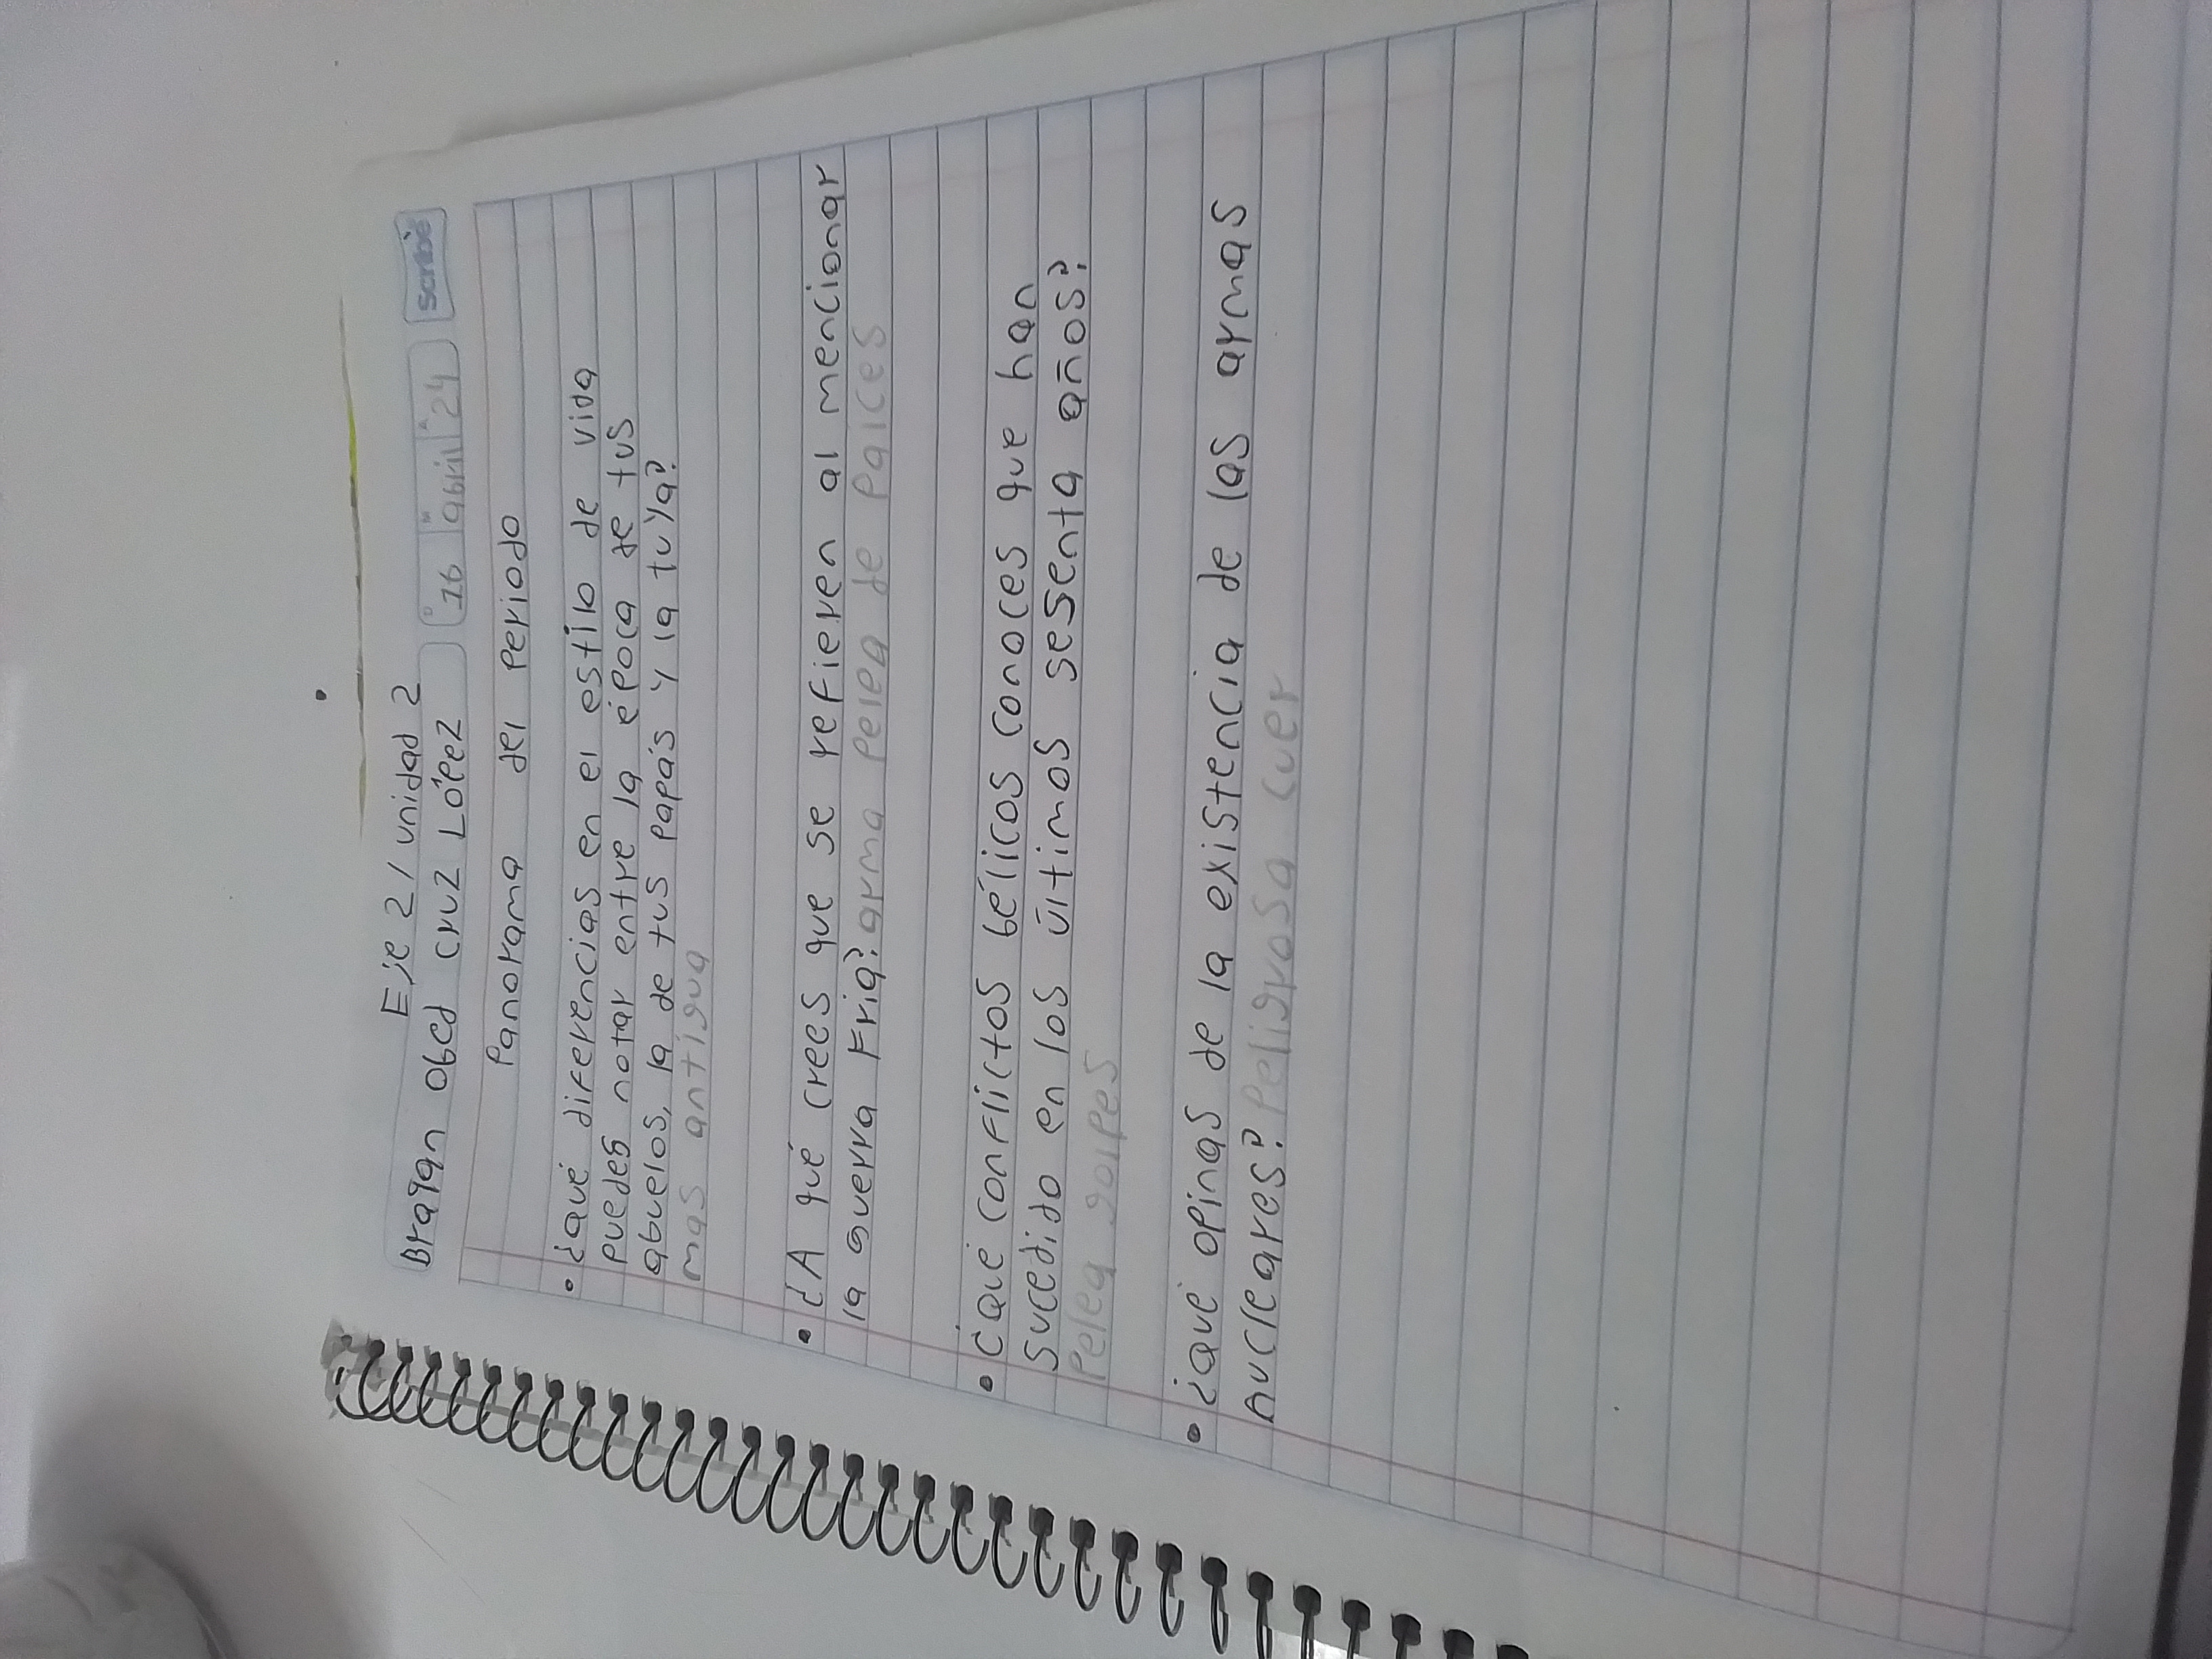 Eje 2/unidad 2
Brayan Obed cruz López
D 16 M abril A 24
scribe
Panorama del periodo
• ¿qué diferencias en el estilo de vida
puedes notar entre la época de tus
abuelos, la de tus papás y la tuya?
mas antigua
• ¿A qué crees que se refieren al mencionar
la guerra Fria? arma pelea de paices
• ¿qué conflictos bélicos conoces que han
sucedido en los últimos sesenta años?
pelea golpes
• ¿qué opinas de la existencia de las armas
nucleares? peligrosa cuer